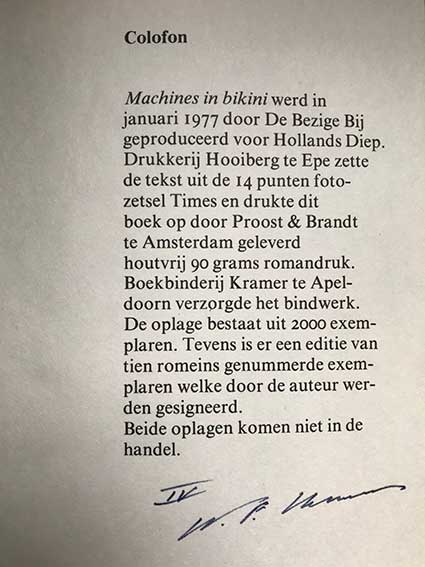 Colofon
Machines in bikini werd in
januari 1977 door De Bezige Bij
geproduceerd voor Hollands Diep.
Drukkerij Hooiberg te Epe zette
de tekst uit de 14 punten foto-
zetsel Times en drukte dit
boek op door Proost & Brandt
te Amsterdam geleverd
houtvrij 90 grams romandruk.
Boekbinderij Kramer te Apel-
doorn verzorgde het bindwerk.
De oplage bestaat uit 2000 exem-
plaren. Tevens is er een editie van
tien romeins genummerde exem-
plaren welke door de auteur wer-
den gesigneerd.
Beide oplagen komen niet in de
handel.
IV
W. F.